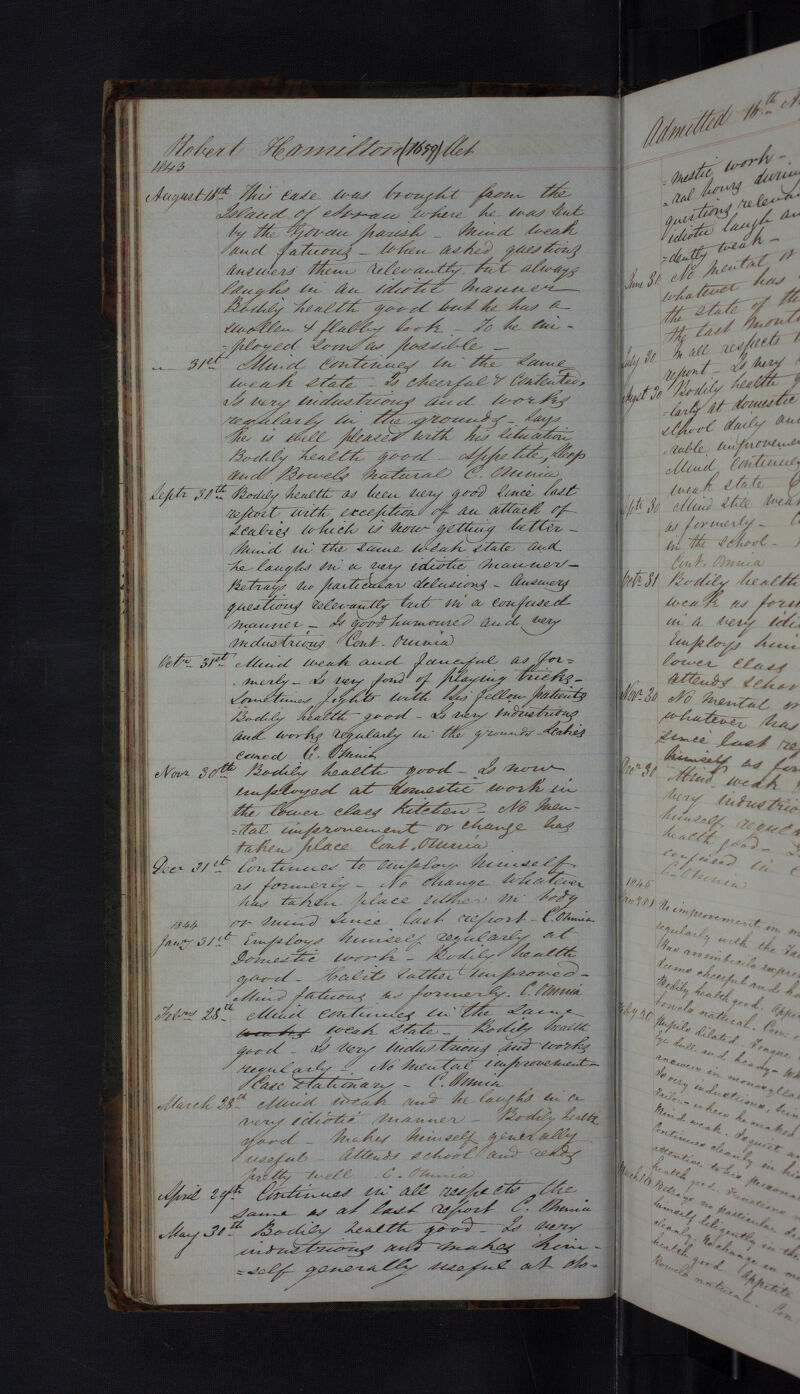 Robert Hamilton (1659) Aet
1843
August 18th This case was brought from the
Island of Arran where he was put
by the Govan parish - Mind weak
and fatuous - When asked questions
answers them relevantly but always
laughs in an idiotic manner
Bodily health good but he has a
swollen & flabby look - To be em-
-ployed soon as possible -
" 31st Mind continues in the same
weak state - Is cheerful & contented.
Is very industrious and works
regularly in the grounds - Says
he is well pleased with his situation
Bodily health good - Appetite, Sleep
and Bowels natural C. Omnia
Septr 30th Bodily health as been very good since last
report with exception of an attack of
scabies which is now getting better -
Mind in the same weak state and
he laughs in a very idiotic manner -
Betrays no particular delusions - Answers
questions relevantly but in a confused
manner - Is good humoured and very
industrious Cont. Omnia
Octr 31st Mind weak and fanciful as for=
-merly - Is very fond of playing tricks -
Sometimes fights with his fellow patients
Bodily health good - Is very industrious
and works regularly in the grounds - Scabies
cured C. Omnia
Novr 30th Bodily health good - Is now
employed at domestic work in
the lower class kitchen - No men-
=tal improvement or change has
taken place Cont. Omnia
Decr 31st Continues to employ himself
as formerly - No change whatever
has taken place either in body
or mind since last report - C. Omnia
1844
Jany 31st Employs himself regularly at
Domestic work - Bodily health
good - Habits rather improved -
Mind fatuous as formerly. C. Omnia
Febry 28th Mind continues in the same
weak state - Bodily health
good - Is very industrious and works
regularly - No mental improvement -
Case stationary - C. Omnia
March 28th Mind weak and he laughs in a
very idiotic manner - Bodily health
good - Makes himself generally
useful - Attends school and reads
pretty well C. Omnia
April 29th Continues in all respects the
same as at last report C. Omnia
May 30th Bodily health good - Is very
industrious and makes him-
=self generally useful at do-
Admitted 16th
=mestic work -
-ral hours during
questions relevan
idiotic laugh an
-dently weak -
June 30 No mental or
whatever has
the state of th
the last month
July 30 In all respects
report - Is very
Augst 30 Bodily health g
-larly at domestic
school daily and
-rable improvemen
Mind continues
weak state
Septr 30 Mind still weak
as formerly -
in the school -
Cont. Omnia
Octr 31 Bodily health
weak as form
in a very idi
Employs him
lower class
attends schoo
Novr 30 No mental or
whatever has
since last re
himself as for
Decr 31 Mind weak
very industrio
himself regul
health good -
confined in
C. Omnia
1845
No improvement in m
regularly with the
Has an imbecile expres
Seems cheerful and
Bodily health good. Appe
bowels natural. Con
Feby 20 Pupils dilated. Tongue
eye dull and heavy -
answers in monosyllab
Is very industrious.
Tailor - where he makes
Mind weak. Is quiet a
Continues cleanly in hi
attentive to his persona
health good.
March Betrays no particular de
himself diligently in the
cleanly. No change in m
health good Appetite
Bowels natural. Con